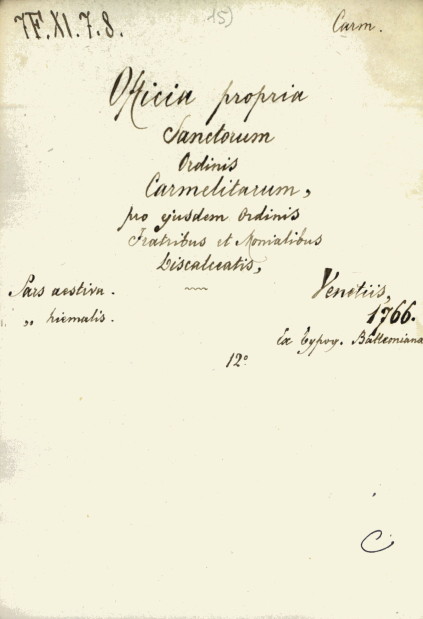 7F.XI.7.8.
15)
Carm.
Officia propria
Sanctorum
Ordinis
Carmelitarum,
pro ejusdem Ordinis
Fratribus et Monialibus
Discalceatis,
Pars aestiva.
„ hiemalis.
Venetiis,
1766.
Ex typog. Balleoniana
12°
C